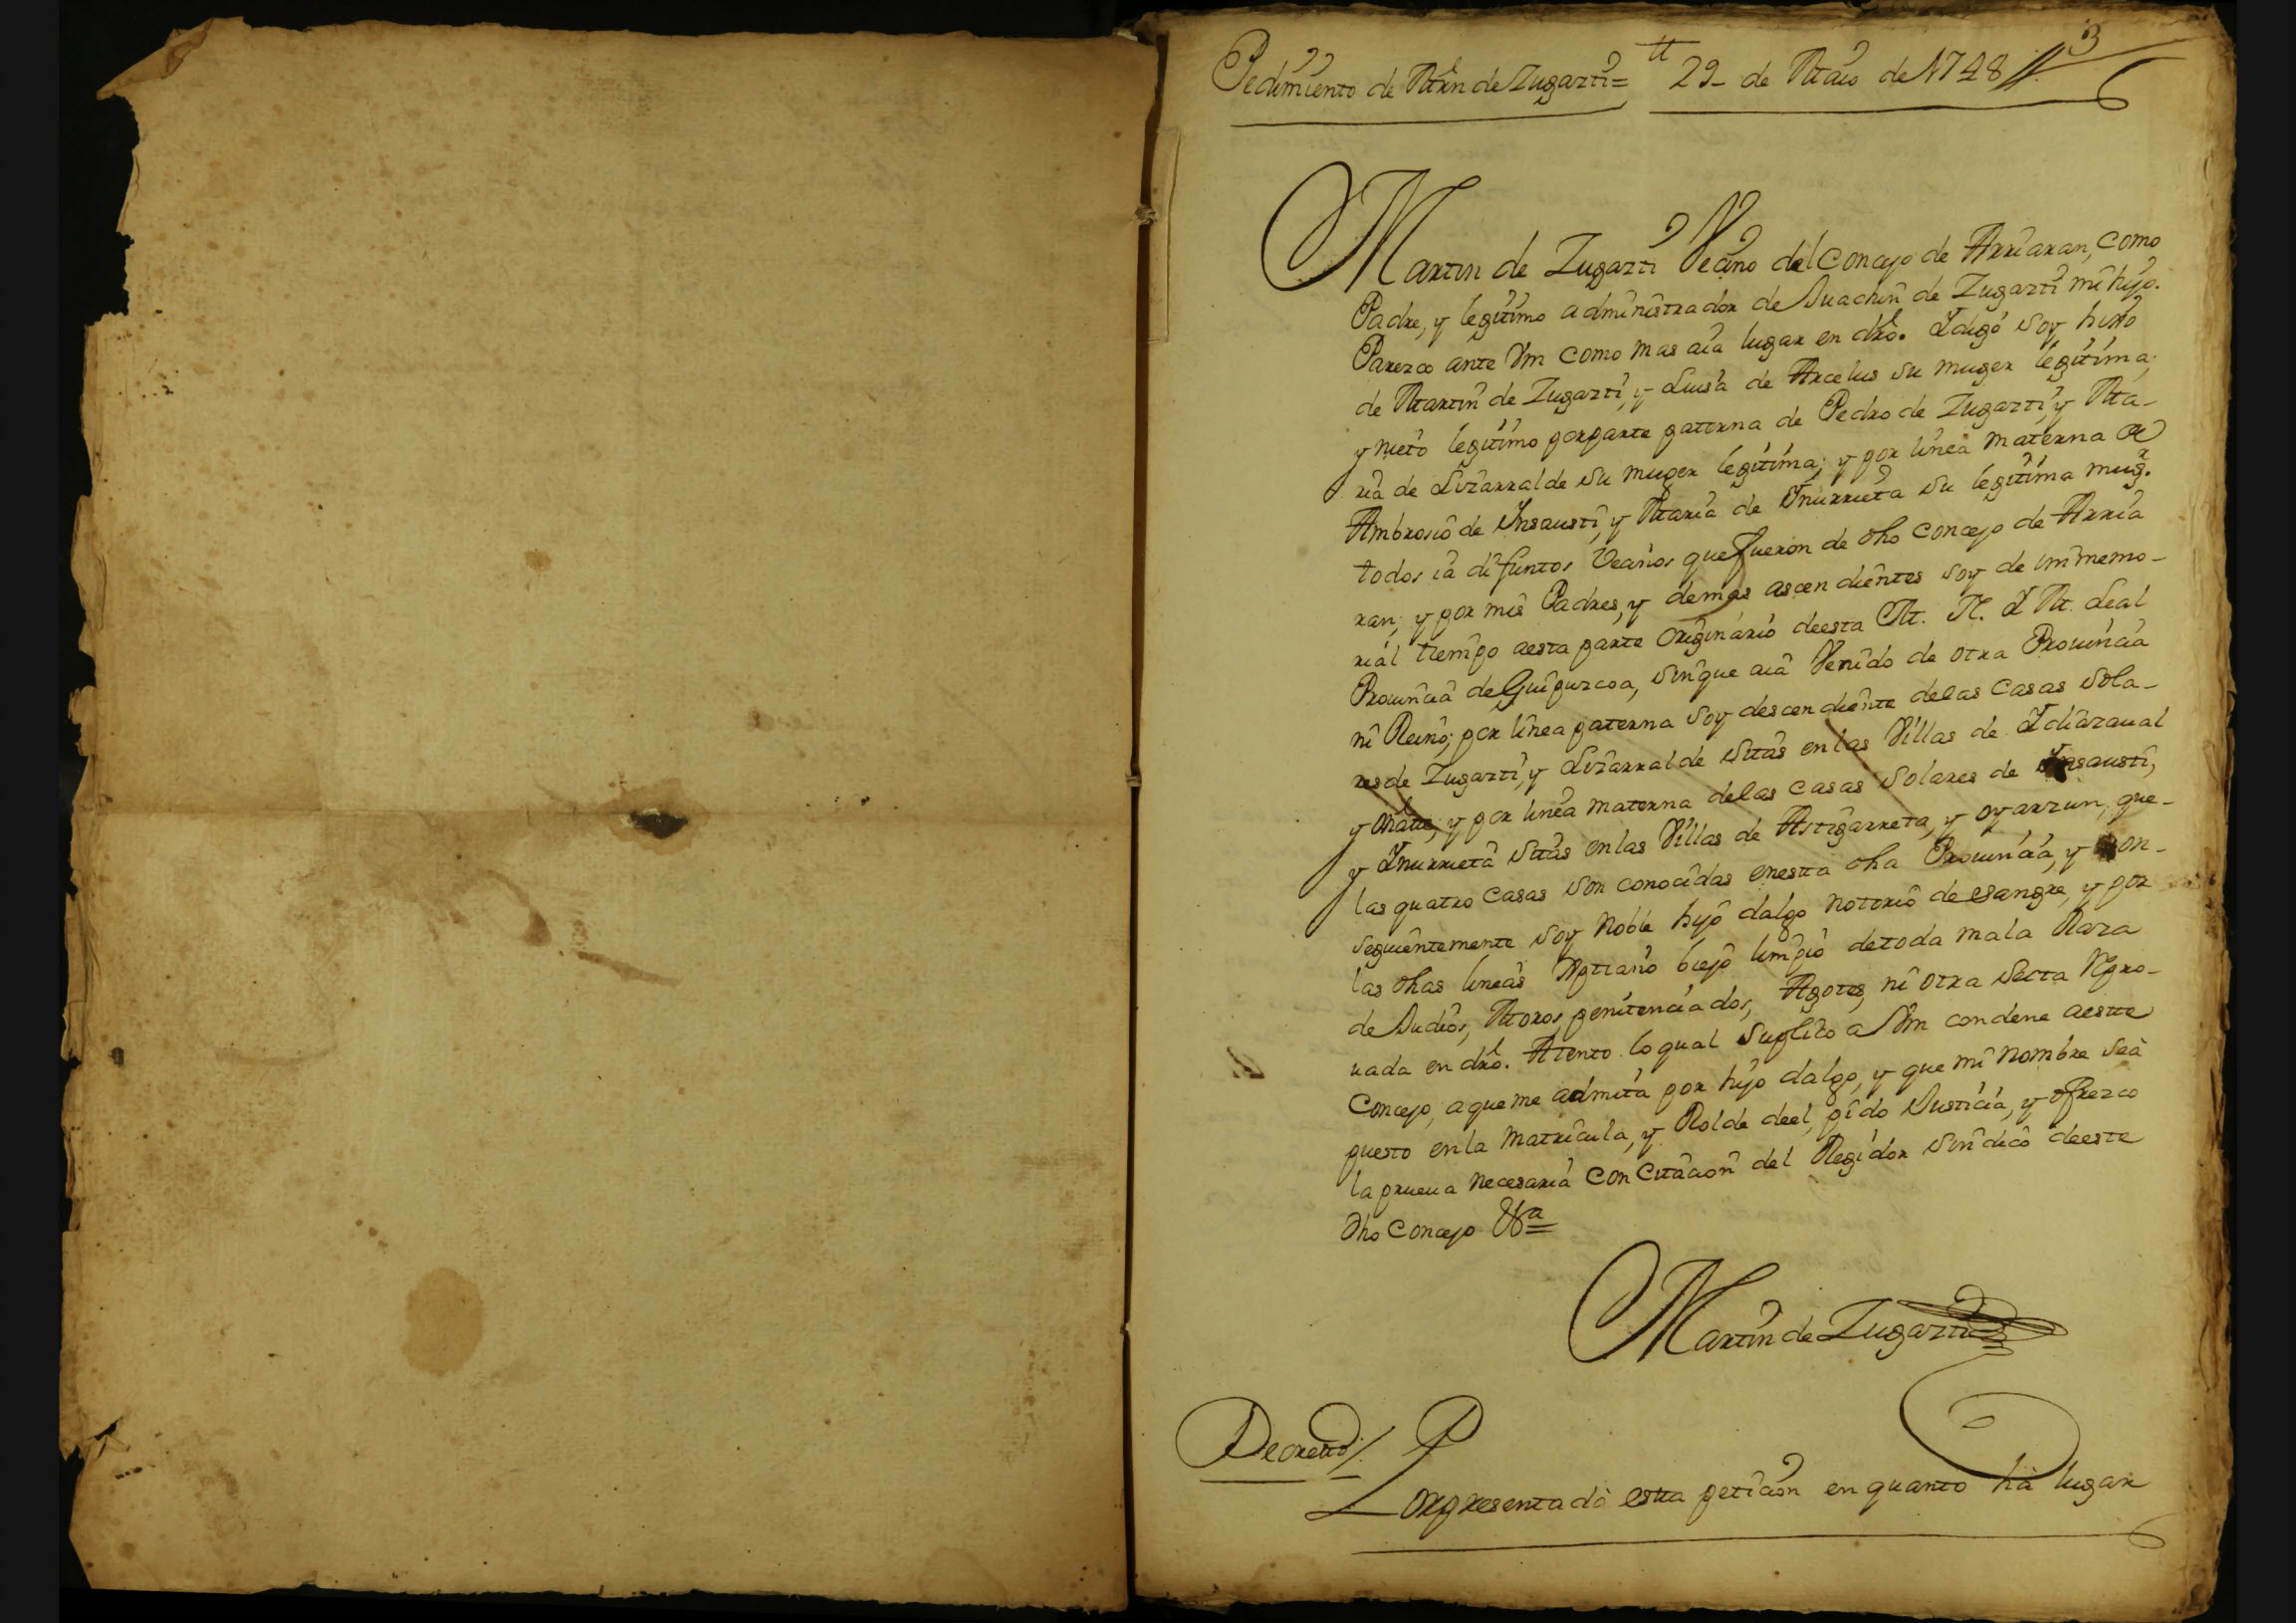 Pedimiento de Mrn de Zugazti= tt 29_ de Maio de 1748 // 3
Martin de Zugazti Vecino del Concejo de Arriaran, como
Padre, y legitimo administrador de Juachin de Zugazti mi hijo.
Parezco ante Vm como mas aia lugar en dro. Y digo soy hixo
de Martin de Zugazti, y Luisa de Arcelus su muger legitima;
y nieto legitimo por parte paterna de Pedro de Zugazti, y Ma-
ria de Lizarralde su muger legitima; y por linea materna de
Ambrosio de Insausti, y Maria de Inurrieta su legitima mugr.
todos ia difuntos Vecinos que fueron de dho Concejo de Arria
ran; y por mis Padres, y demas ascendientes soy de immemo-
rial tiempo aesta parte originario deesta M. N. Y M. Leal
Provincia de Guipuzcoa, sinque aia Venido de otra Provincia
ni Reino; por linea paterna soy descendiente delas Casas Sola-
res de Zugazti, y Lizarralde sitas en las Villas de Ydiazaual
y Oñate; y por linea materna delas Casas Solares de Insausti,
y Ynurrieta sitas en las Villas de Astigarreta, y oyarzun, que-
las quatro Casas son conocidas enesta dha Provincia, y Con-
seguientemente soy Noble hijo dalgo notorio de sangre, y por
las dhas lineas Xptiano biejo limpio detoda mala Raza
de Judios, Moros, penitenciados, Agotes, ni otra secta Repro-
uada en dro. Atento lo qual Suplico a Vm condene aeste
Concejo, aque me admita por hijo dalgo, y que mi nombre sea
puesto en la Matricula, y Rolde deel, pido Justicia, y ofrezco
la prueua necesaria con Citacion del Regidor Sindico deeste
Dho Concejo Va
Martin de Zugazti
Decreto/. Por presentada esta peticion en quanto ha lugar